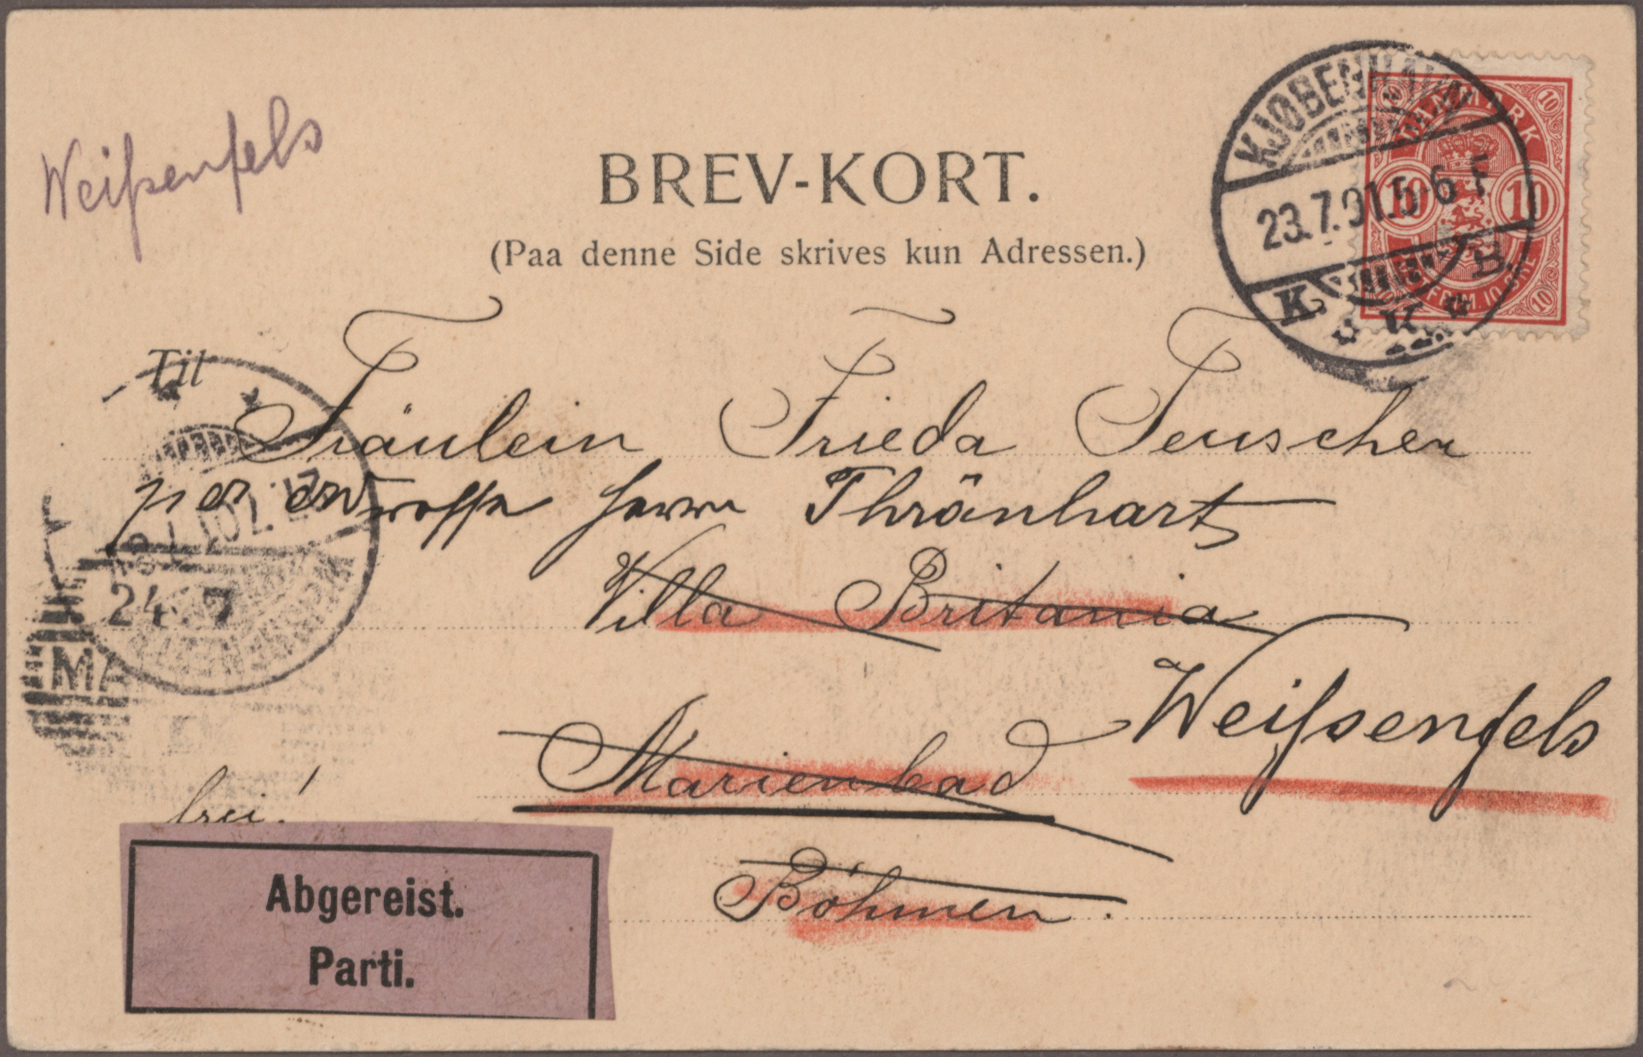 Weißenfels
BREV-KORT.
(Paa denne Side skrives kun Adressen.)
KJØBENHAVN
23.7.01.5-6 E
K. K. B.
DANMARK
10 10
FRIM. 10 ØRE
10 10 10
Til
Fräulein Frieda Teuscher
per Herrn Thränhart
Villa Britania
24 7
MA
Weißenfels
Marienbad
frei!
Böhmen.
Abgereist.
Parti.